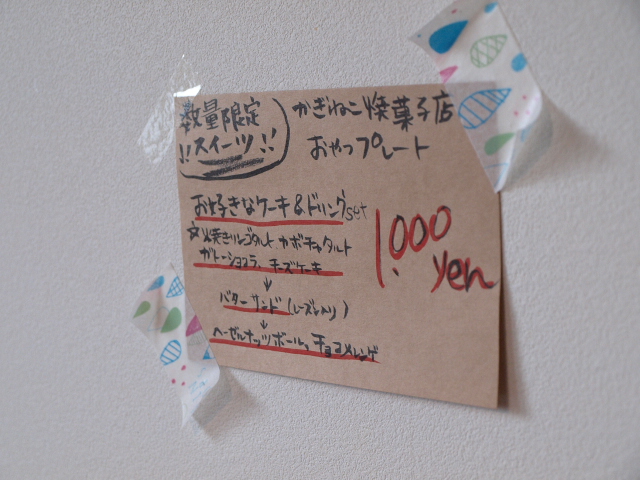 数量限定
!!スイーツ!!
かぎねこ焼菓子店
おやつプレート
お好きなケーキ&ドリンクset
焼きリンゴタルト、カボチャタルト
ガトーショコラ、チーズケーキ
↓
バターサンド(レーズン入り)
↓
ヘーゼルナッツボール、チョコメレンゲ
1,000
yen